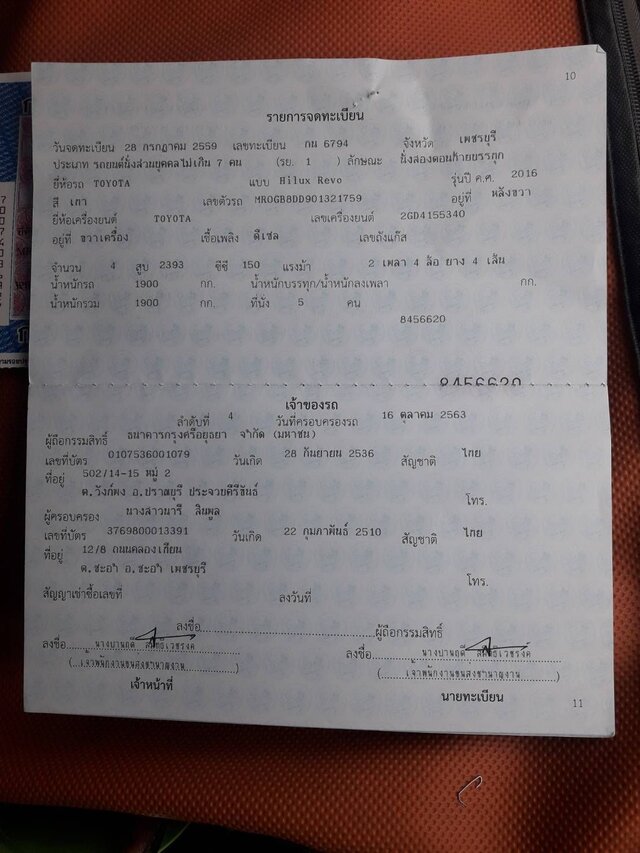 10
รายการจดทะเบียน
วันจดทะเบียน 28 กรกฎาคม 2559 เลขทะเบียน กน 6794 จังหวัด เพชรบุรี
ประเภท รถยนต์นั่งส่วนบุคคลไม่เกิน 7 คน (รย. 1 ) ลักษณะ นั่งสองตอนท้ายบรรทุก
ยี่ห้อรถ TOYOTA แบบ Hilux Revo รุ่นปี ค.ศ. 2016
สี เทา เลขตัวรถ MR0GB8DD901321759 อยู่ที่ หลังขวา
ยี่ห้อเครื่องยนต์ TOYOTA เลขเครื่องยนต์ 2GD4155340
อยู่ที่ ขวาเครื่อง เชื้อเพลิง ดีเซล เลขถังแก๊ส
จำนวน 4 สูบ 2393 ซีซี 150 แรงม้า 2 เพลา 4 ล้อ ยาง 4 เส้น
น้ำหนักรถ 1900 กก. น้ำหนักบรรทุก/น้ำหนักลงเพลา กก.
น้ำหนักรวม 1900 กก. ที่นั่ง 5 คน
8456620
8456620
เจ้าของรถ
ลำดับที่ 4 วันที่ครอบครองรถ 16 ตุลาคม 2563
ผู้ถือกรรมสิทธิ์ ธนาคารกรุงศรีอยุธยา จำกัด (มหาชน)
เลขที่บัตร 0107536001079 วันเกิด 28 กันยายน 2536 สัญชาติ ไทย
ที่อยู่ 502/14-15 หมู่ 2
ต.วังก์พง อ.ปราณบุรี ประจวบคีรีขันธ์ โทร.
ผู้ครอบครอง นางสาวนารี สินพูล
เลขที่บัตร 3769800013391 วันเกิด 22 กุมภาพันธ์ 2510 สัญชาติ ไทย
ที่อยู่ 12/8 ถนนคลองเทียน
ต.ชะอำ อ.ชะอำ เพชรบุรี โทร.
สัญญาเช่าซื้อเลขที่ ลงวันที่
ลงชื่อ ผู้ถือกรรมสิทธิ์
ลงชื่อ นางบานฤดี ลงชื่อ นางบานฤดี
(เจ้าพนักงานขนส่งชำนาญงาน) (เจ้าพนักงานขนส่งชำนาญงาน)
เจ้าหน้าที่ นายทะเบียน
11